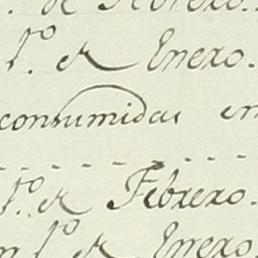 . de Febrero.
1º. de Enero.
consumidas en
1º. de Febrero.
1º. de Enero.